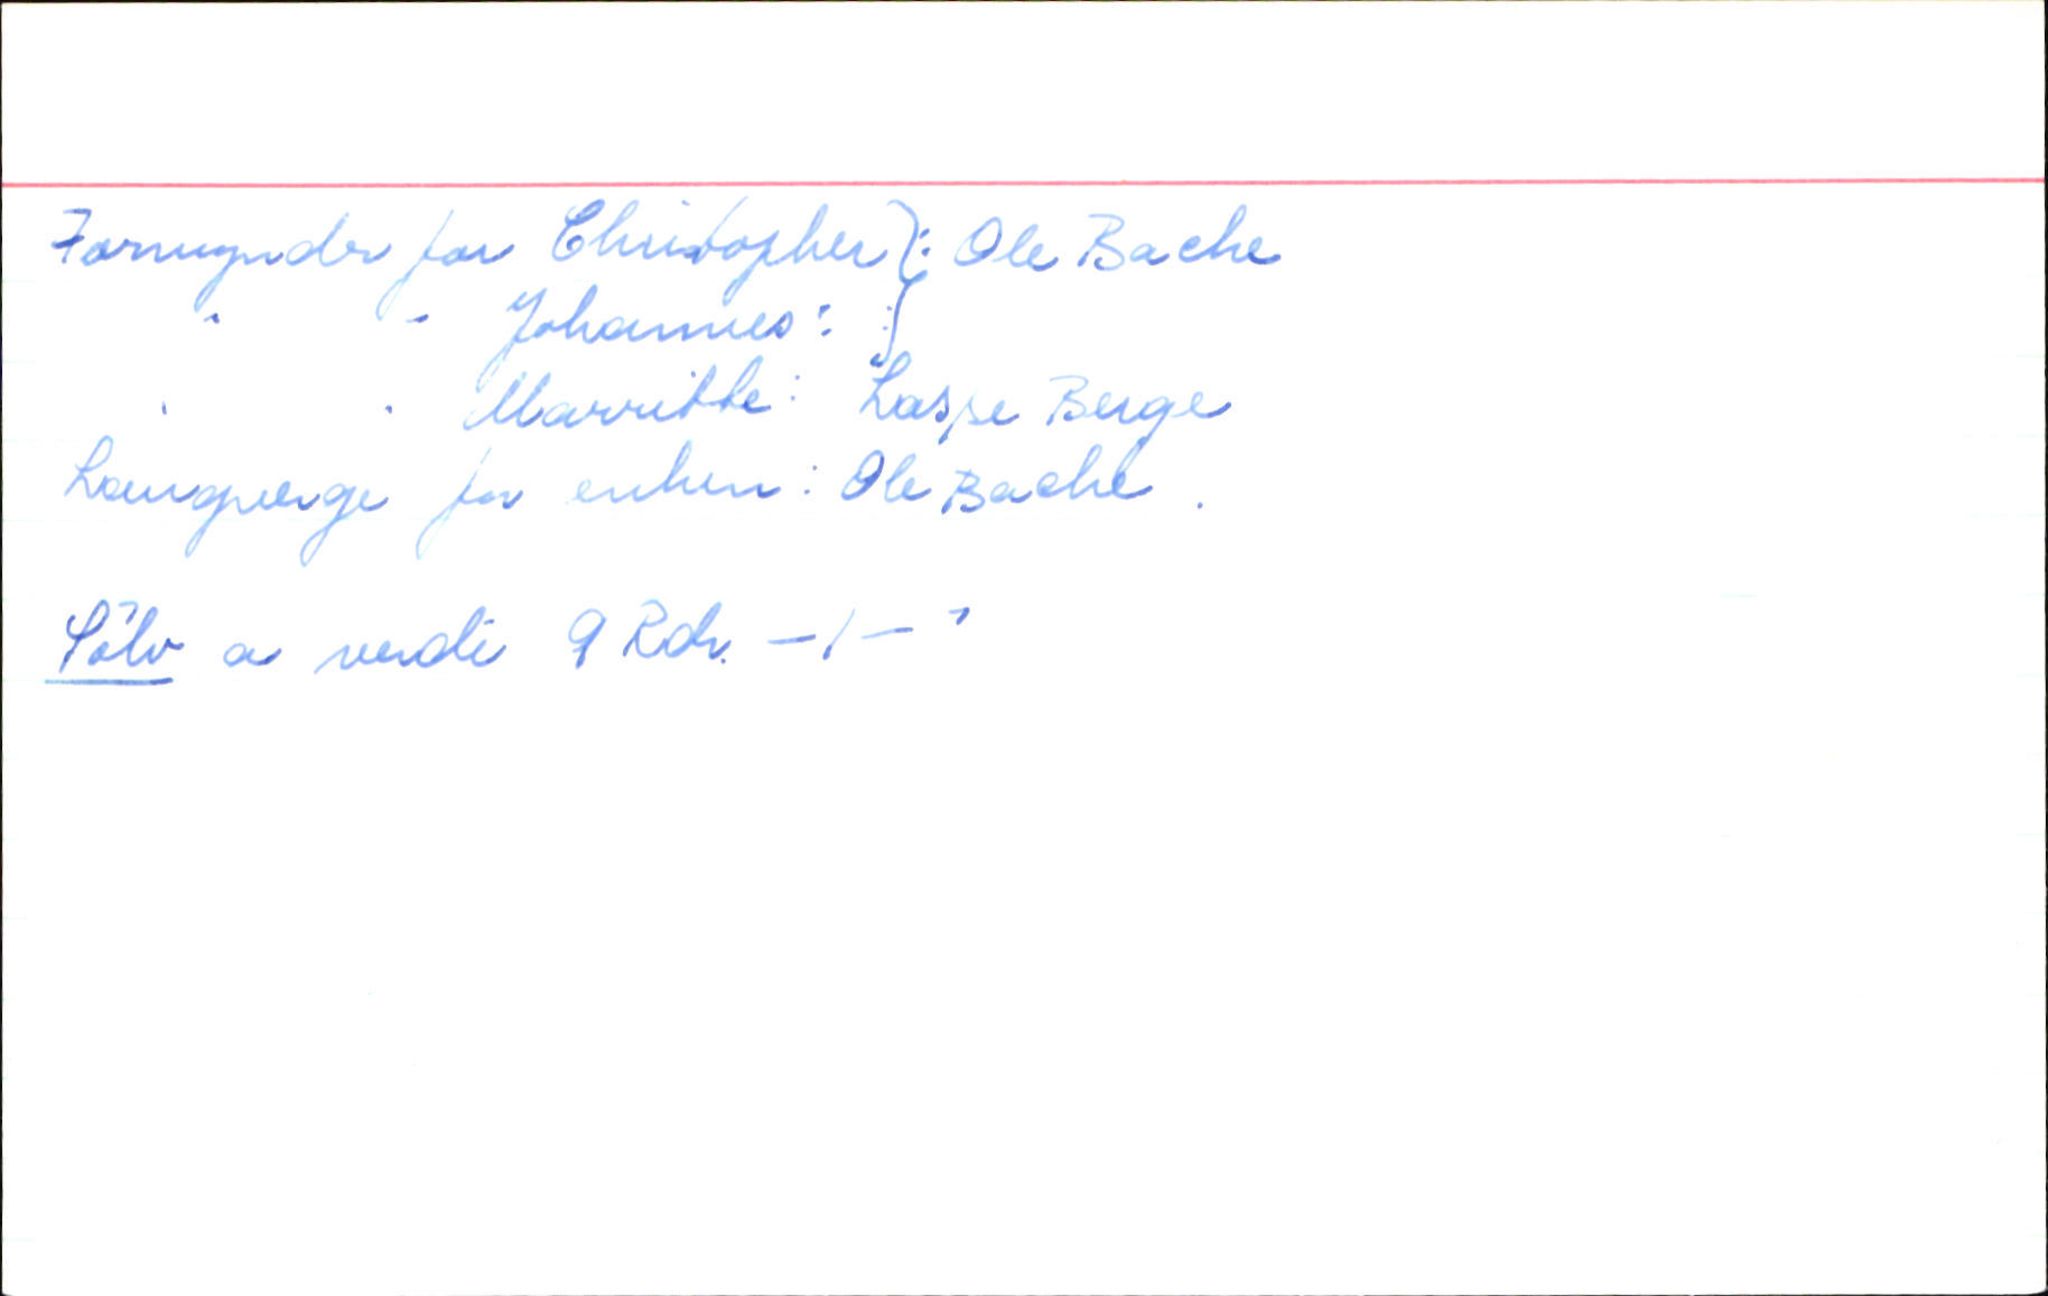 Formynder for Christopher }: Ole Bache
" " Johannes: }
" " Marrithe: Laspe Berge
Laugverge for enken: Ole Bache.
Sölv a verdi 9 Rdr. - / - "